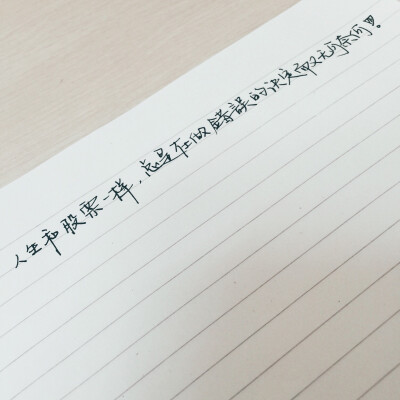 人生和股票一样，总是在做错误的决定而又无可奈何。